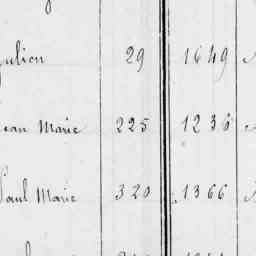 Julien 29 1649
Jean Marie 225 1236
Paul Marie 320 1366